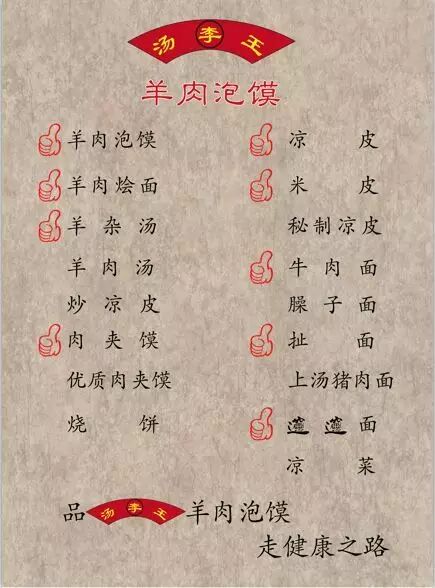 汤李王
羊肉泡馍
羊肉泡馍
羊肉烩面
羊杂汤
羊肉汤
炒凉皮
肉夹馍
优质肉夹馍
烧饼
凉皮
米皮
秘制凉皮
牛肉面
臊子面
扯面
上汤猪肉面
𰻞𰻞面
凉菜
品汤李王羊肉泡馍
走健康之路